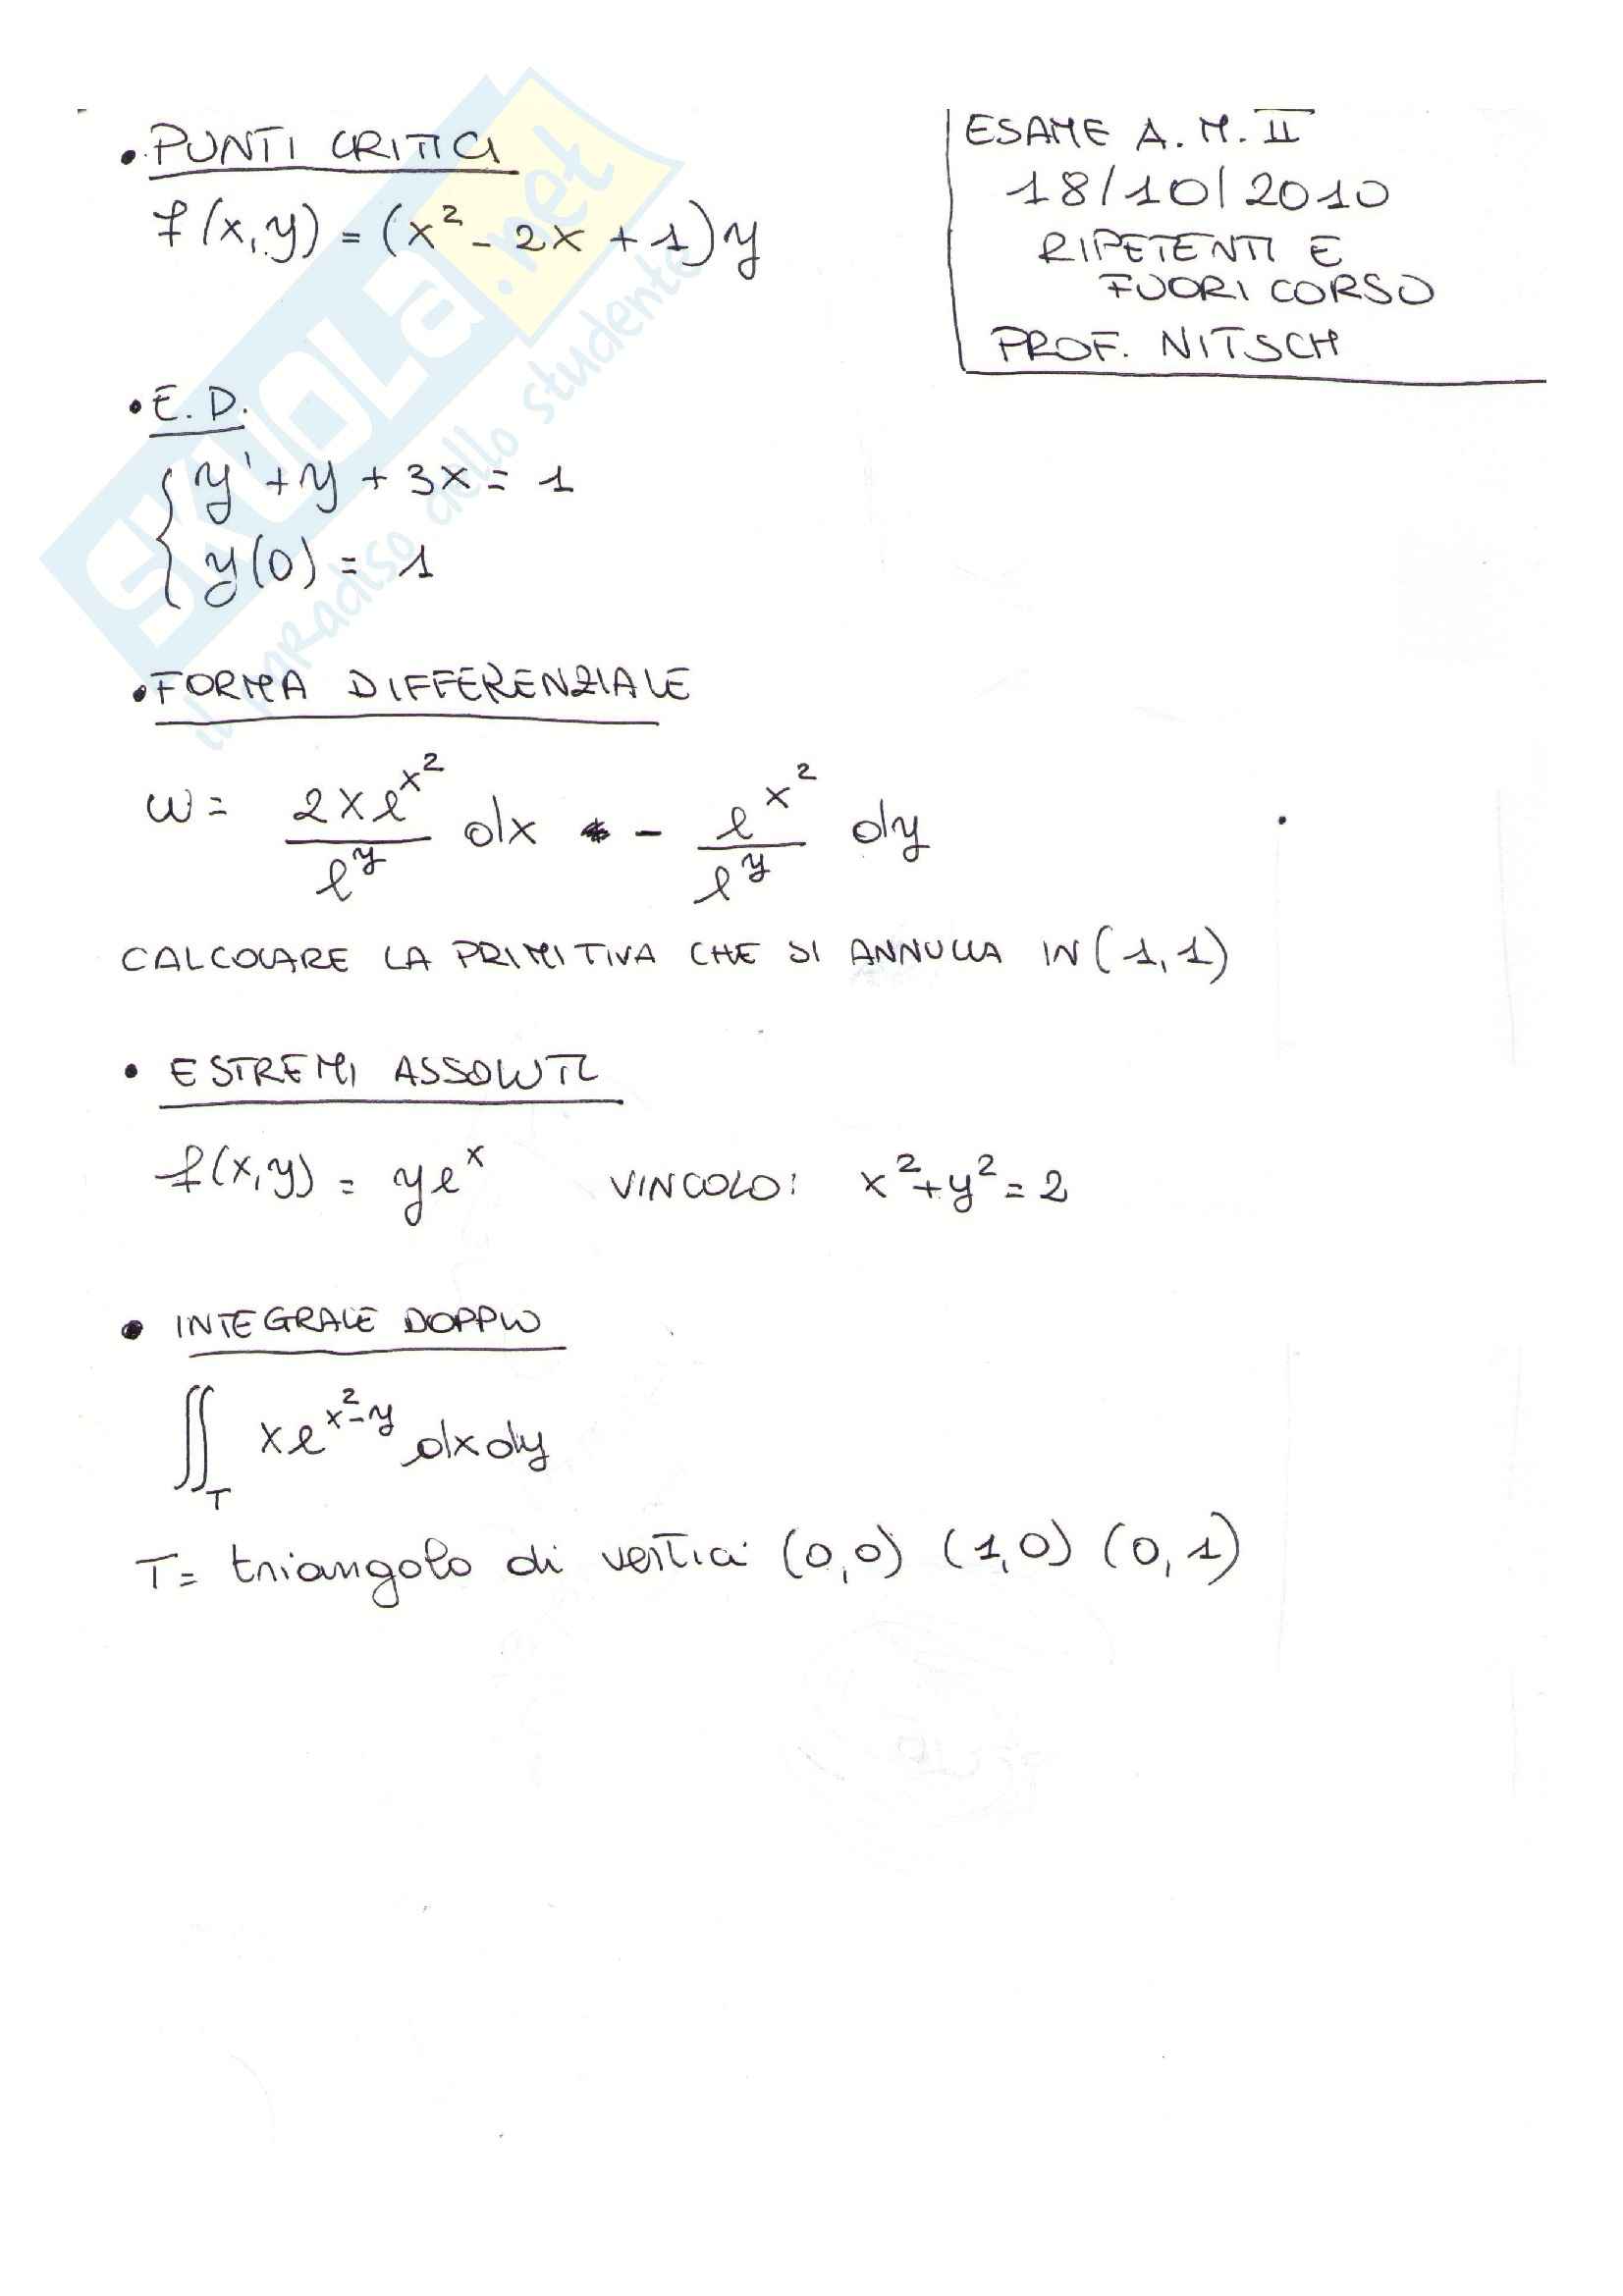 • PUNTI CRITICI
f(x,y) = (x² - 2x + 1)y
ESAME A. M. II
18/10/2010
RIPETENTI E
FUORI CORSO
PROF. NITSCH
• E. D.
{ y' + y + 3x = 1
y(0) = 1
• FORMA DIFFERENZIALE
ω = 2xe^x² / e^y dx - e^x² / e^y dy
CALCOLARE LA PRIMITIVA CHE SI ANNULLA IN (1,1)
• ESTREMI ASSOLUTI
f(x,y) = ye^x VINCOLO: x² + y² = 2
• INTEGRALE DOPPIO
∬_T xe^(x²-y) dxdy
T = triangolo di vertici (0,0) (1,0) (0,1)
SKUOLA.net
il paradiso dello studente